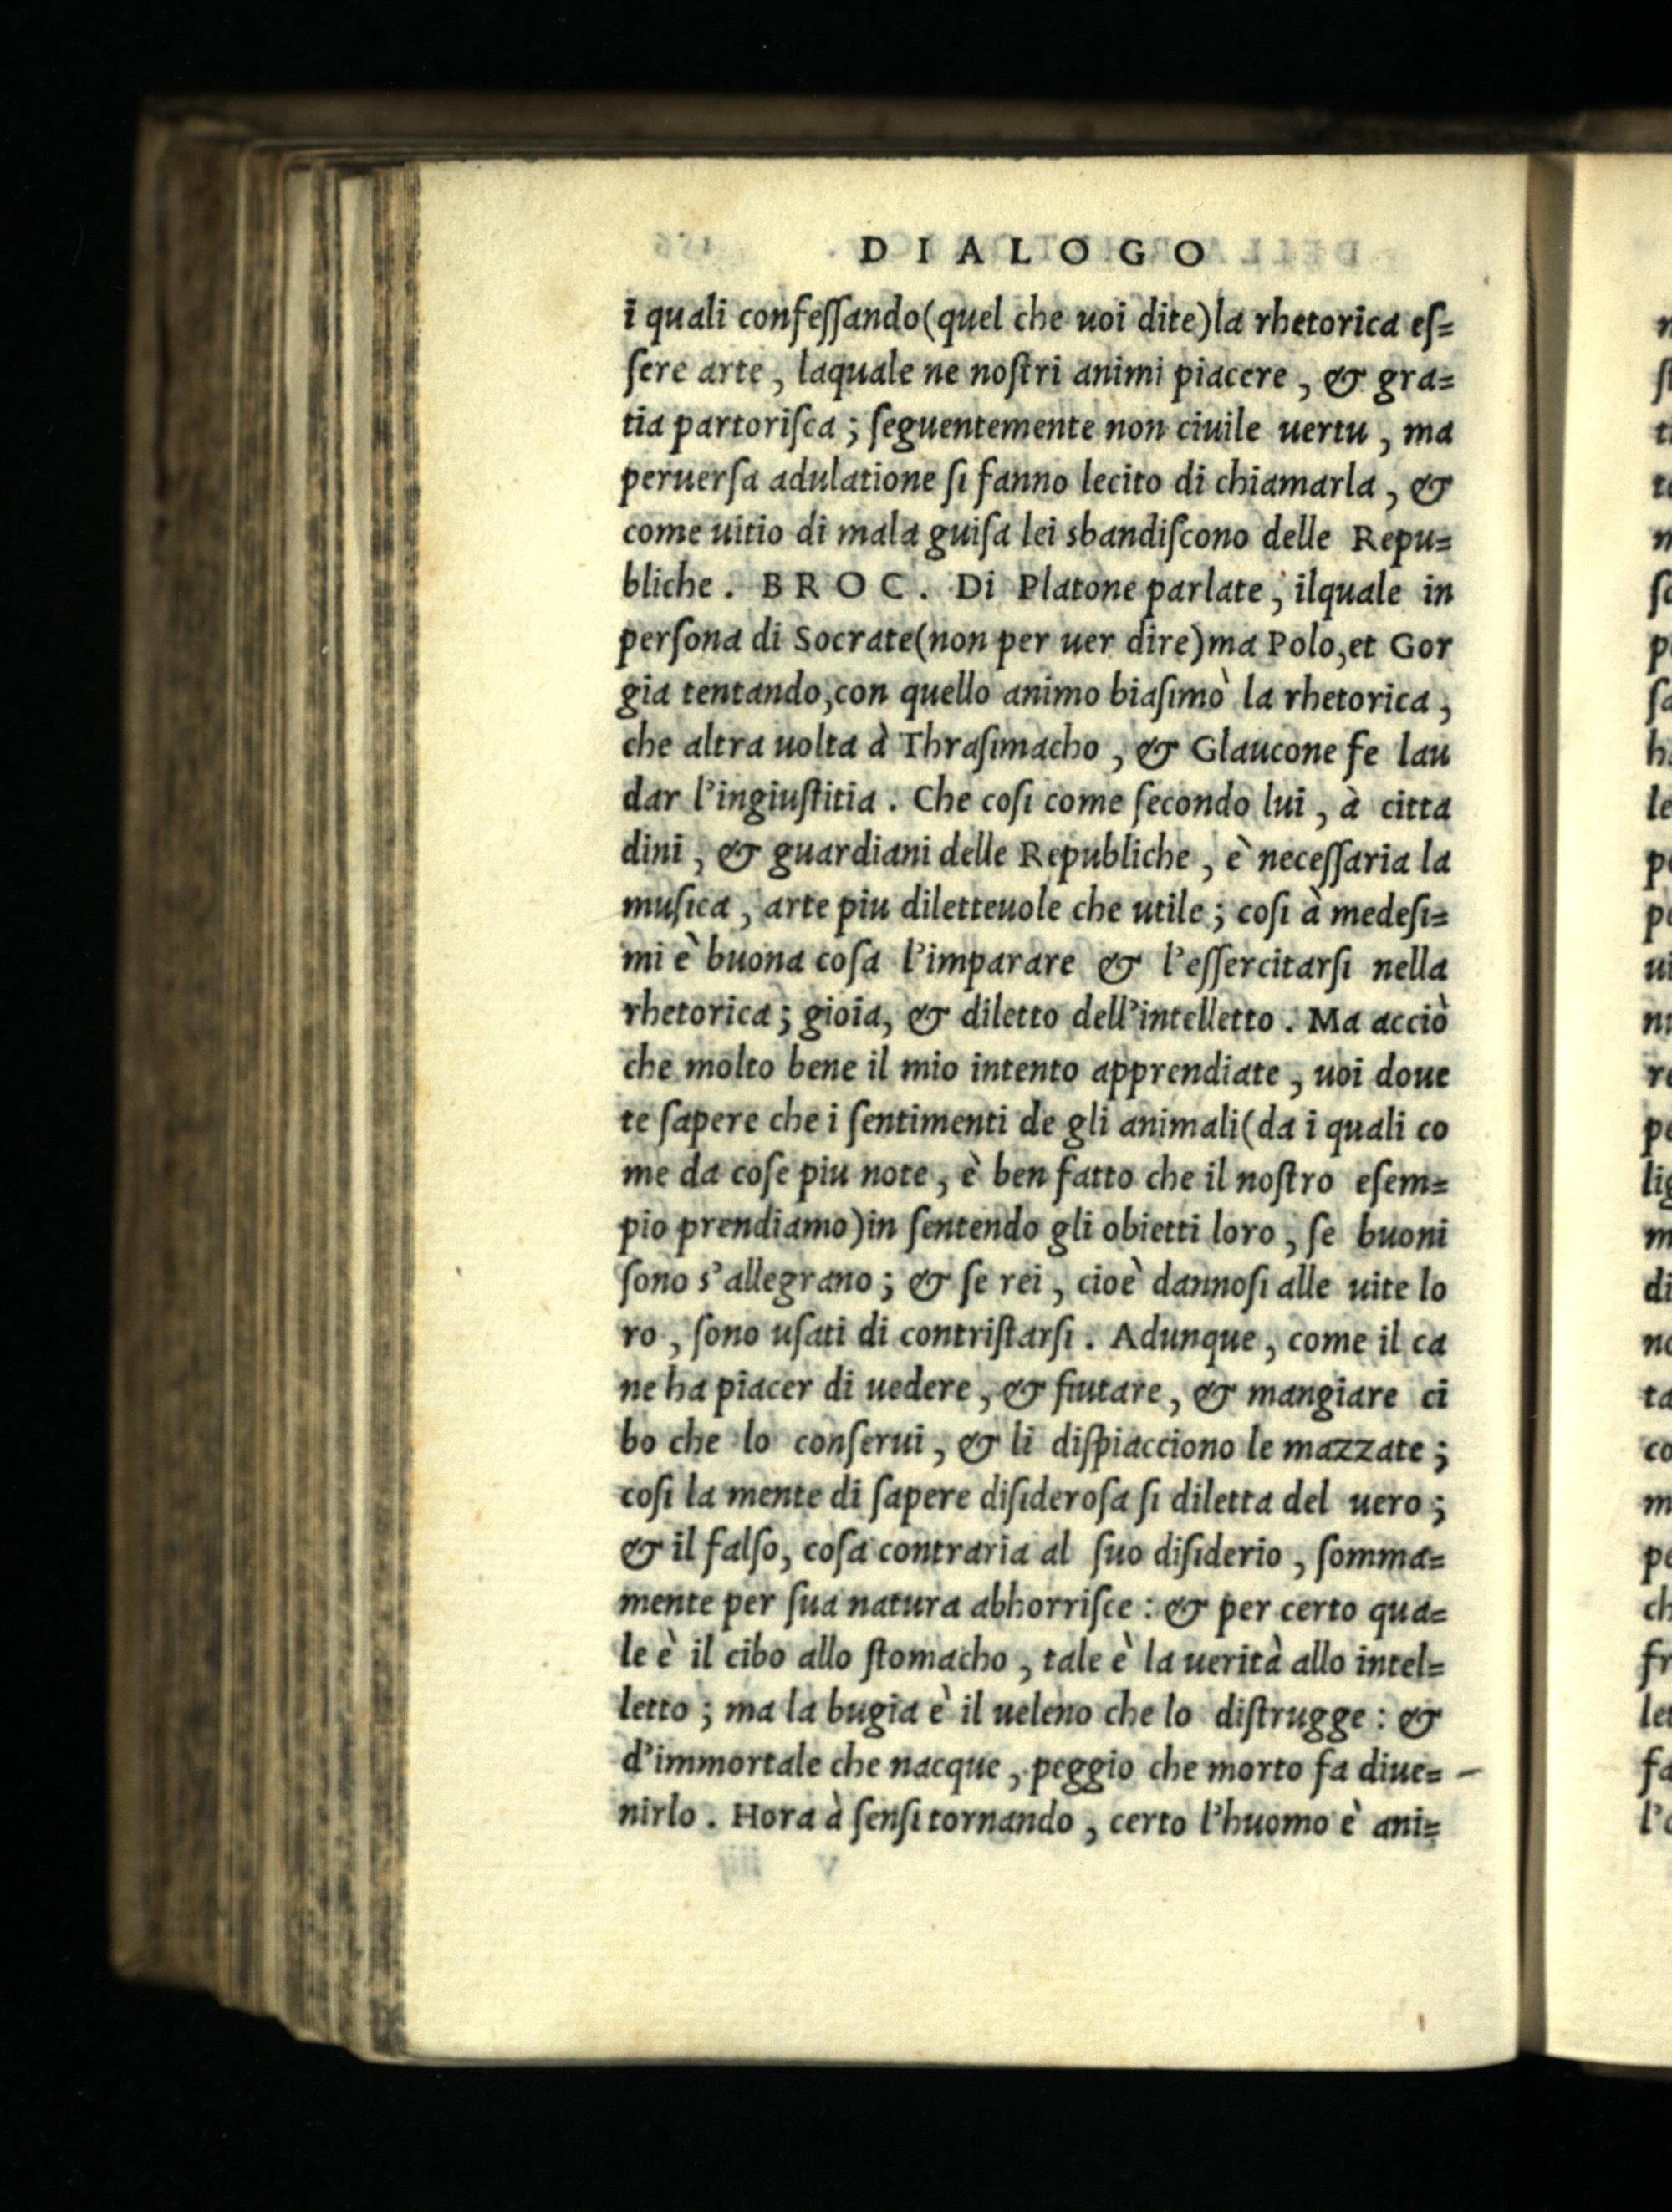 DIALOGO
i quali confeſſando(quel che uoi dite)la rhetorica eſ=
ſere arte, laquale ne noſtri animi piacere, & gra=
tia partoriſca; ſeguentemente non ciuile uertu, ma
peruerſa adulatione ſi fanno lecito di chiamarla, &
come uitio di mala guiſa lei sbandiſcono delle Repu=
bliche. BROC. Di Platone parlate, ilquale in
perſona di Socrate(non per uer dire)ma Polo,et Gor
gia tentando,con quello animo biaſimò la rhetorica,
che altra uolta à Thraſimacho, & Glaucone fe lau
dar l'ingiuſtitia. Che coſi come ſecondo lui, à citta
dini, & guardiani delle Republiche, è neceſſaria la
muſica, arte piu diletteuole che utile; coſi à medeſi=
mi è buona coſa l'imparare & l'eſſercitarſi nella
rhetorica; gioia, & diletto dell'intelletto. Ma acciò
che molto bene il mio intento apprendiate, uoi doue
te ſapere che i ſentimenti de gli animali(da i quali co
me da coſe piu note, è ben fatto che il noſtro eſem=
pio prendiamo)in ſentendo gli obietti loro, ſe buoni
ſono s'allegrano; & ſe rei, cioè dannoſi alle uite lo
ro, ſono uſati di contriſtarſi. Adunque, come il ca
ne ha piacer di uedere, & fiutare, & mangiare ci
bo che lo conſerui, & li diſpiacciono le mazzate;
coſi la mente di ſapere diſideroſa ſi diletta del uero;
& il falſo, coſa contraria al ſuo diſiderio, ſomma=
mente per ſua natura abhorriſce: & per certo qua=
le è il cibo allo ſtomacho, tale è la uerità allo intel=
letto; ma la bugia è il ueleno che lo diſtrugge: &
d'immortale che nacque, peggio che morto fa diue=
nirlo. Hora à ſenſi tornando, certo l'huomo è ani=